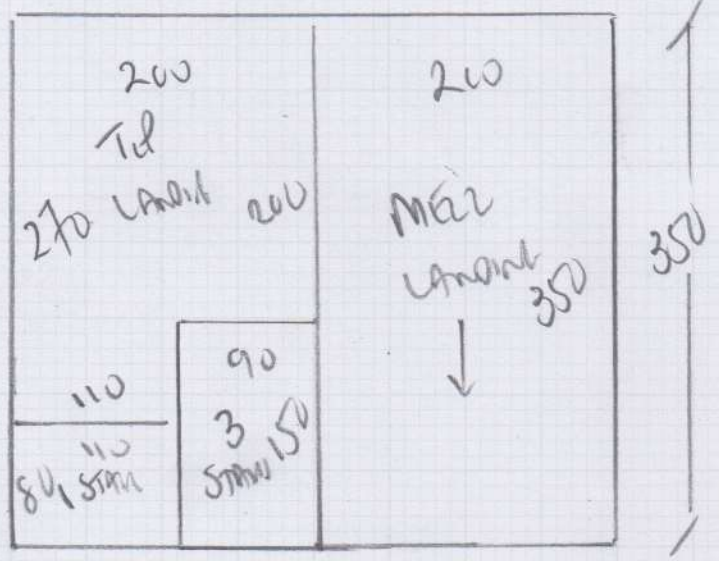 200
Tol
LANDIN
270
200
110
80
110
1 STAIR
90
3
STAIRS
150
200
MEZZ
LANDING
350
350